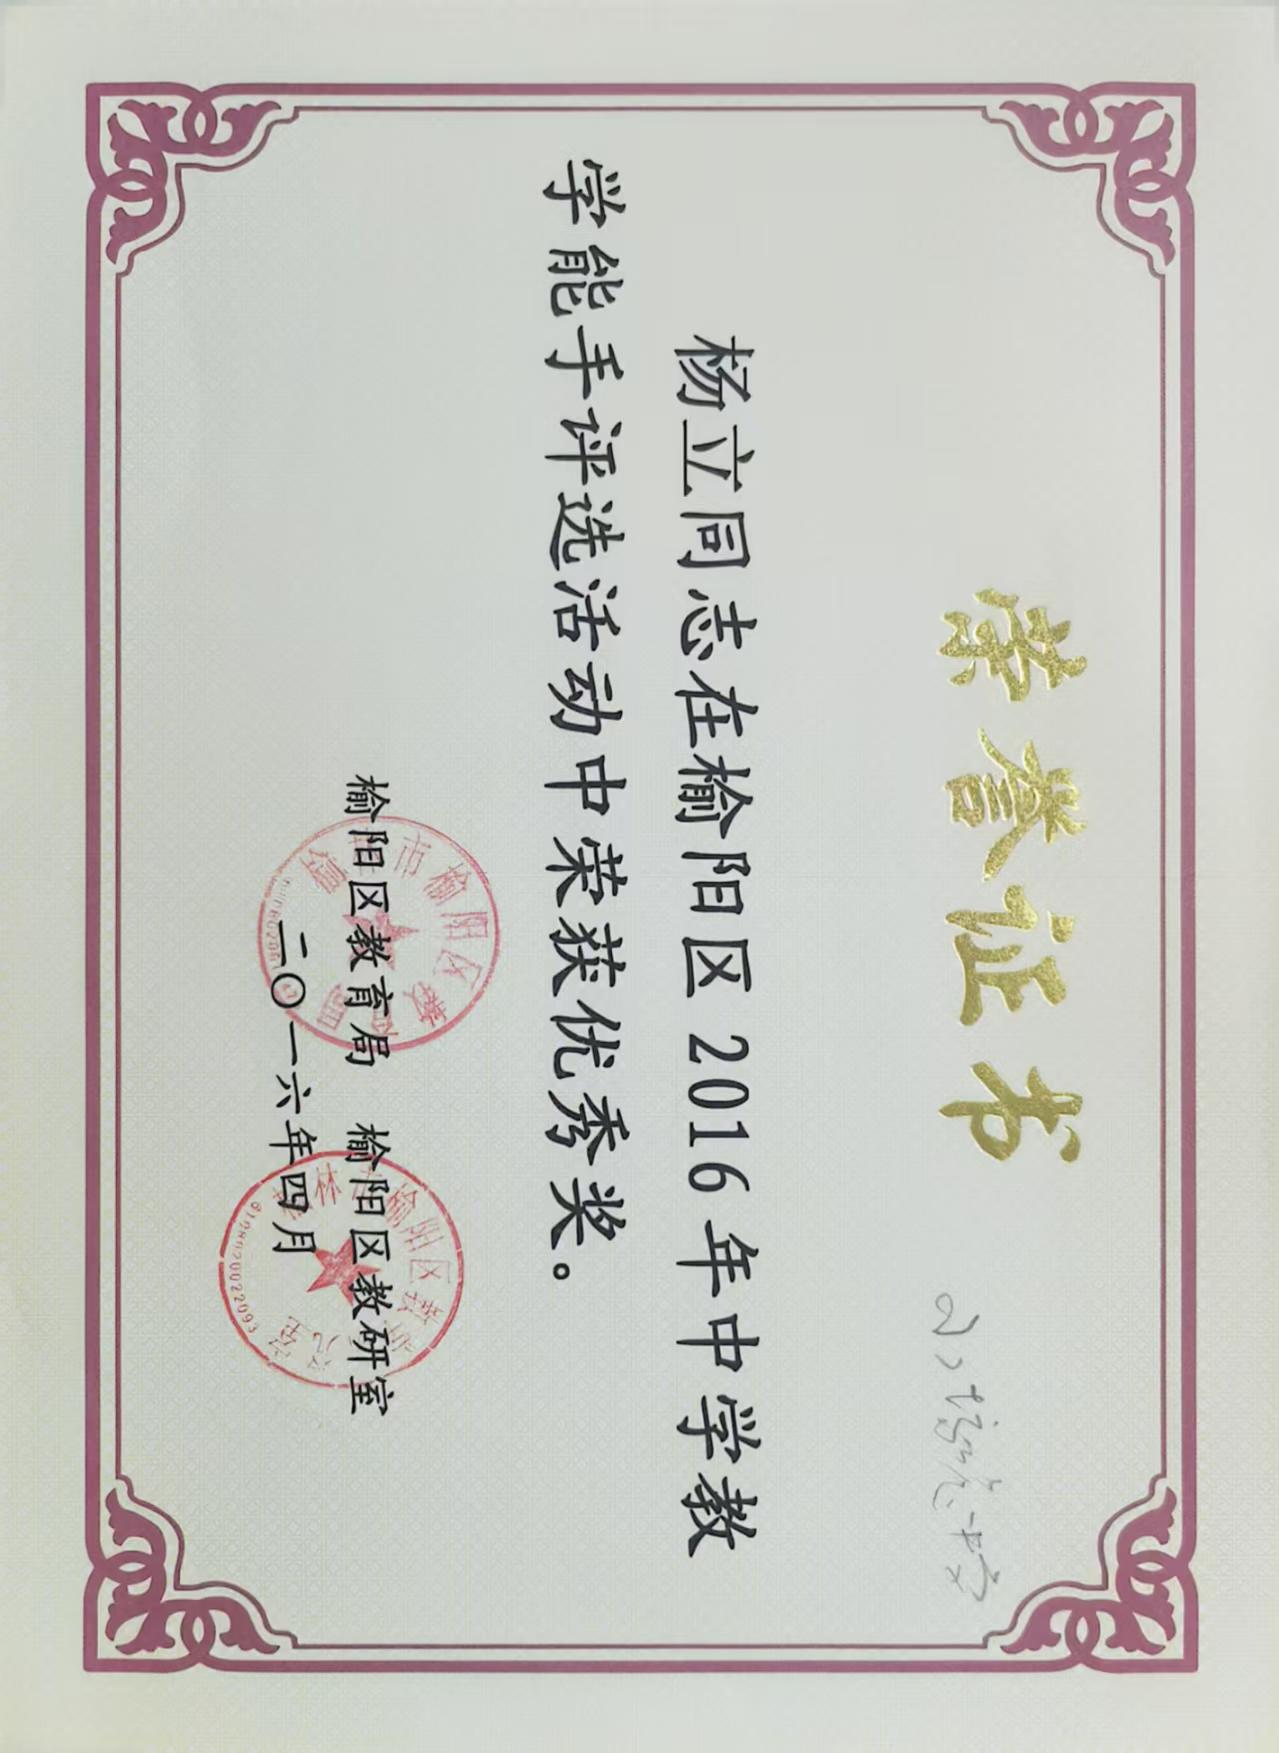 荣誉证书
杨立同志在榆阳区2016年中学教
学能手评选活动中荣获优秀奖。
榆阳区教育局 榆阳区教研室
二〇一六年四月